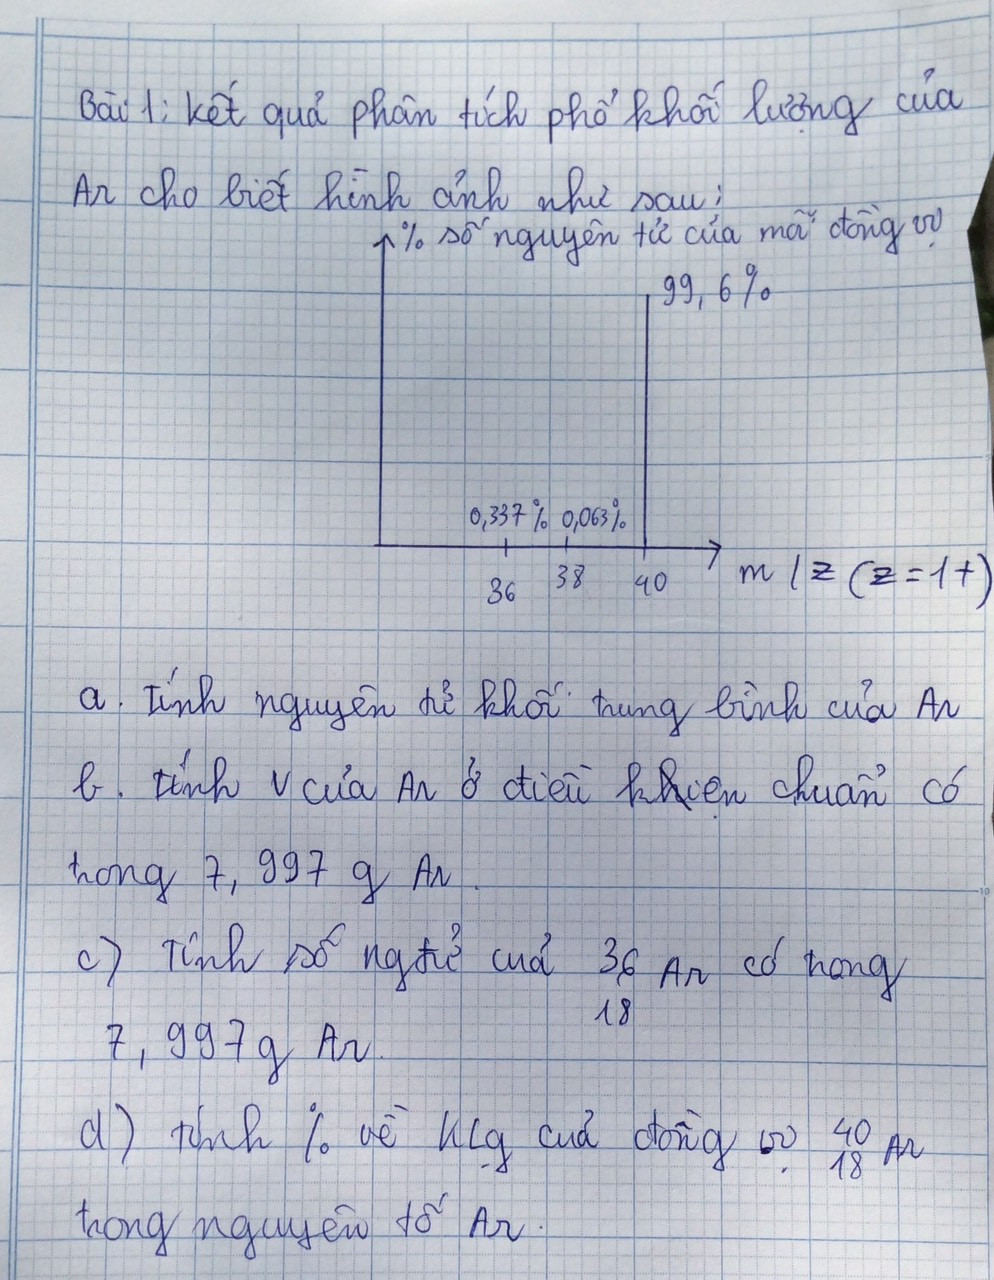 Bài 1: Kết quả phân tích phổ khối lượng của
Ar cho biết hình ảnh như sau:
% số nguyên tử của mỗi đồng vị
99,6%
0,337% 0,063%
36 38 40 m/z (z=1+)
a. Tính nguyên tử khối trung bình của Ar
b. Tính V của Ar ở điều khiện chuẩn có
trong 7,997 g Ar.
c) Tính số ngtử của 36 Ar có trong
18
7,997g Ar.
d) Tính % về klg của đồng vị 40 Ar
18
trong nguyên tố Ar.